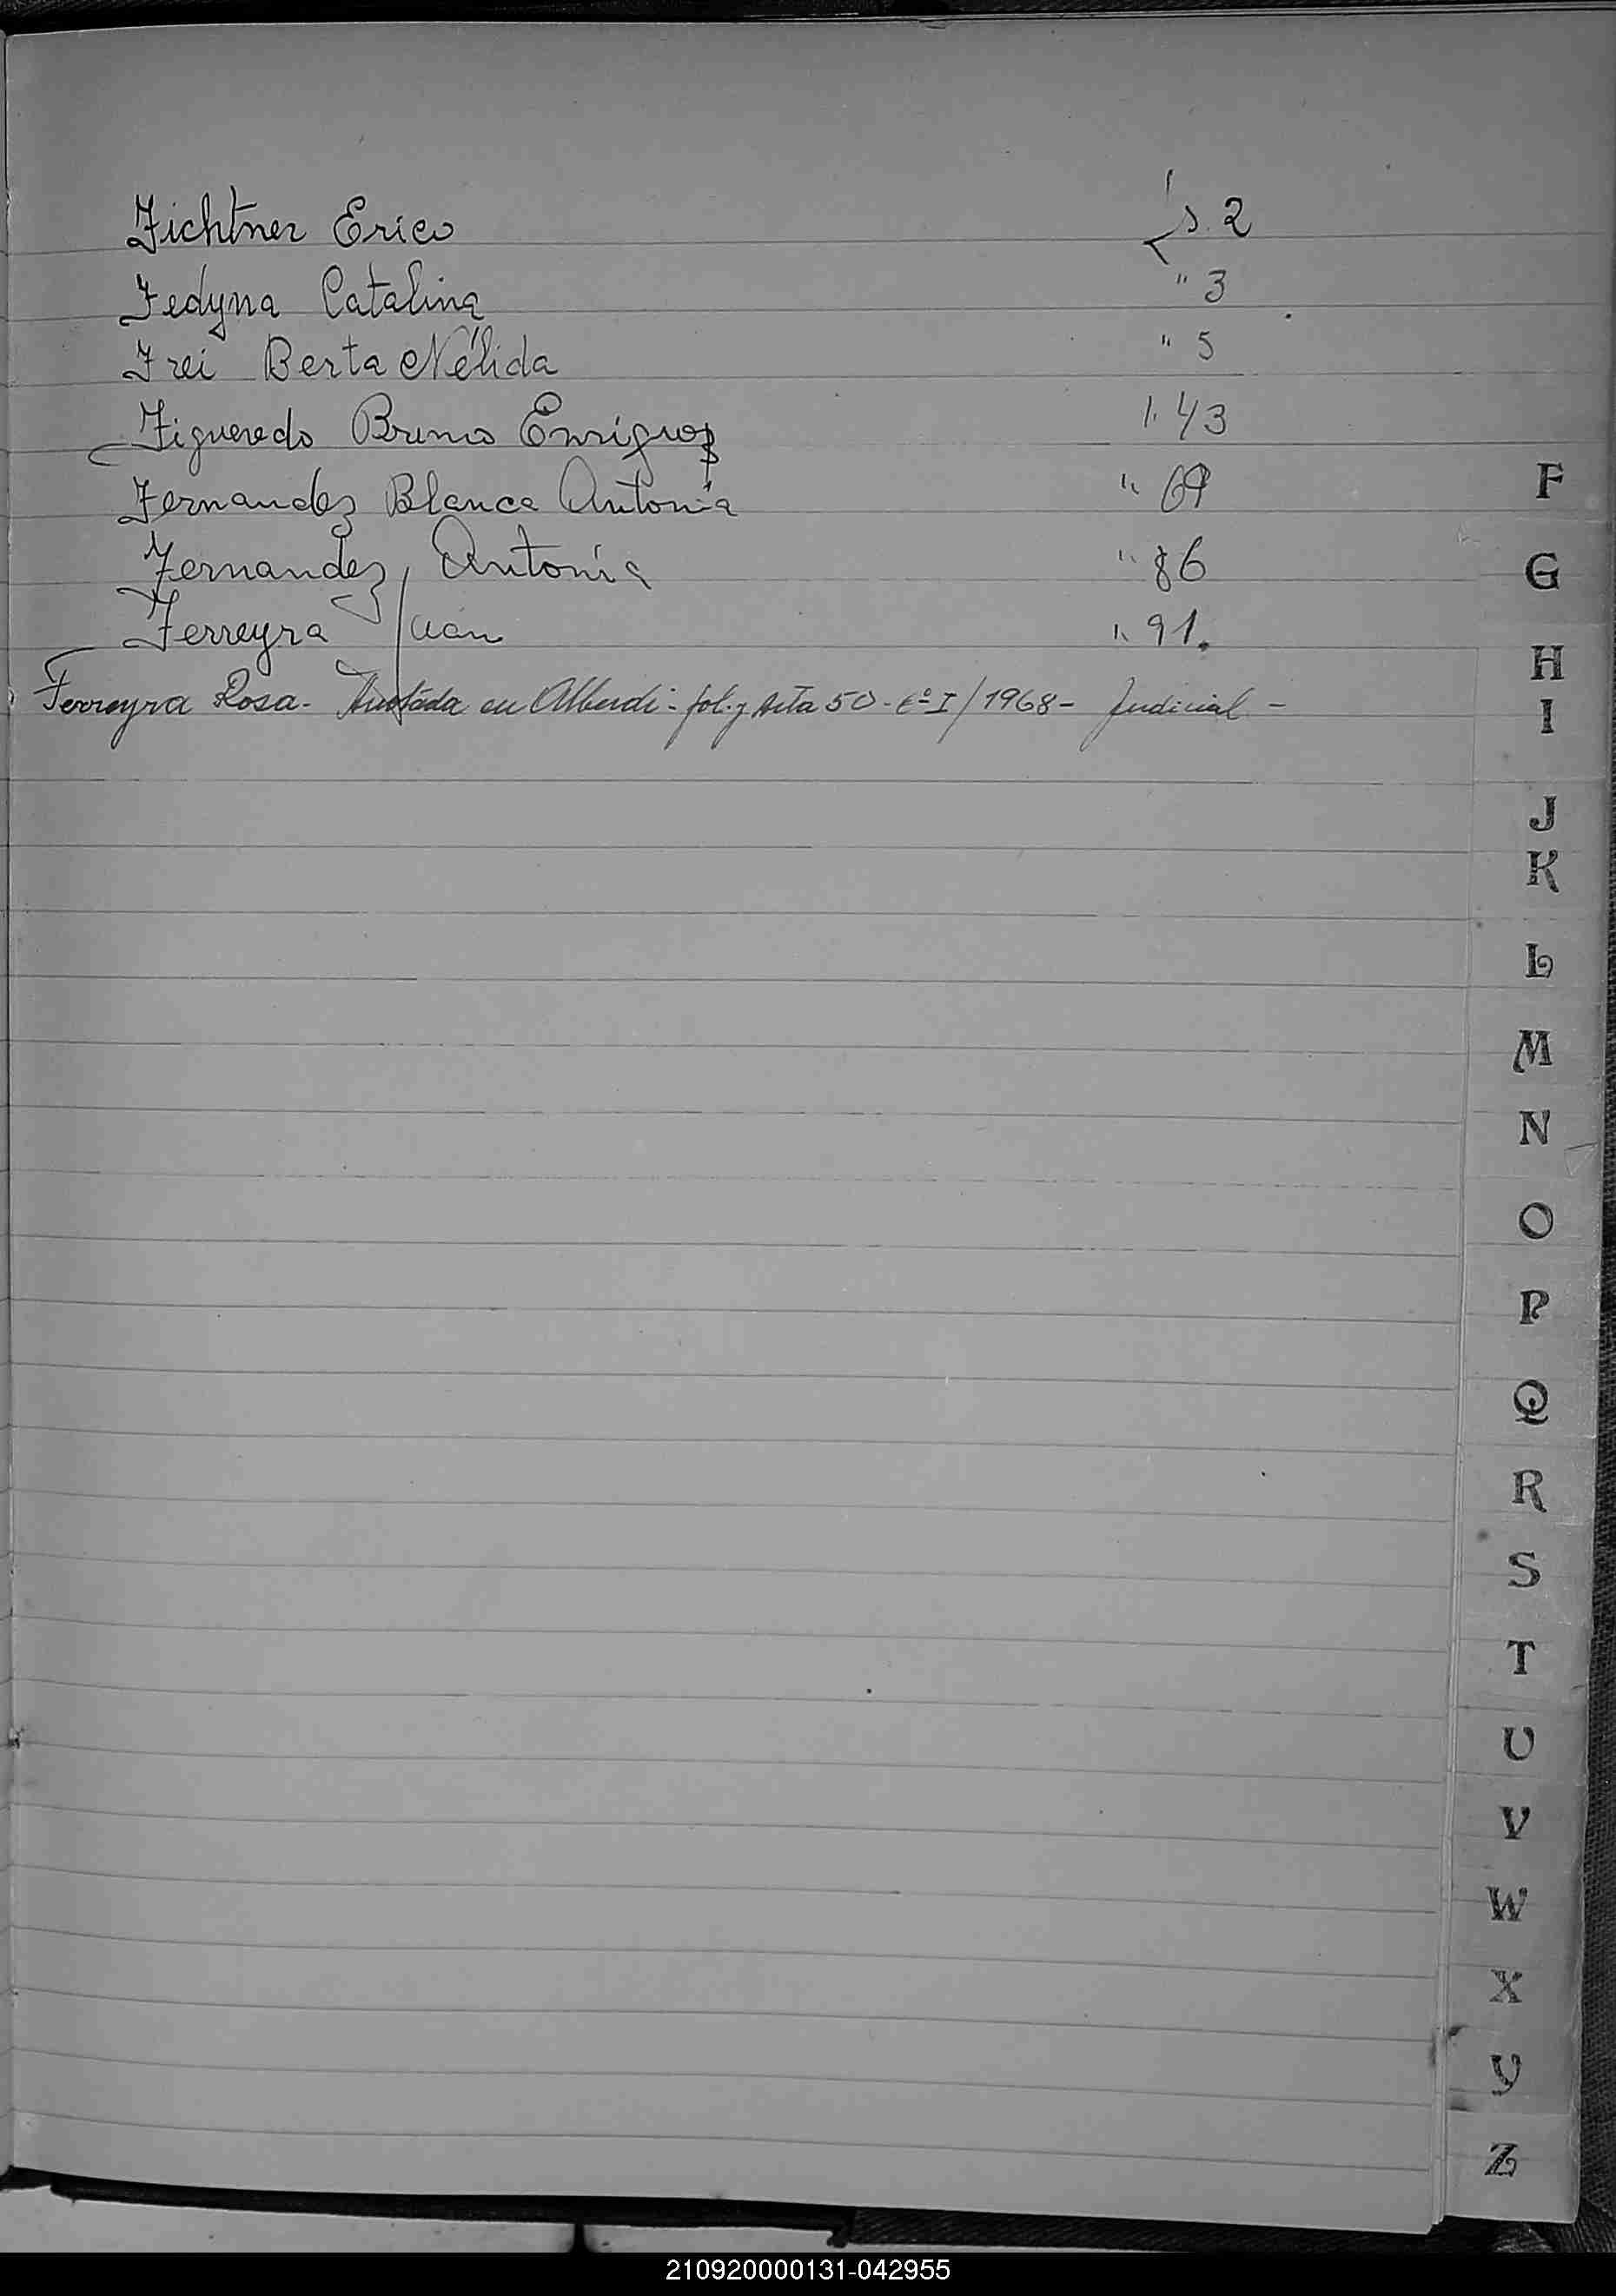 Fichtner Erico fs. 2
Fedyna Catalina " 3
Frei Berta Nélida " 5
Figueredo Bruno Enrique " 43
Fernandez Blanca Antonia " 69
Fernandez, Antonia " 86
Ferreyra Juan " 91.
Ferreyra Rosa - Anotada en Alberdi - fol. y Acta 50 - tº I / 1968 - Judicial -
F
G
H
I
J
K
L
M
N
O
P
Q
R
S
T
U
V
W
X
Y
Z
210920000131-042955